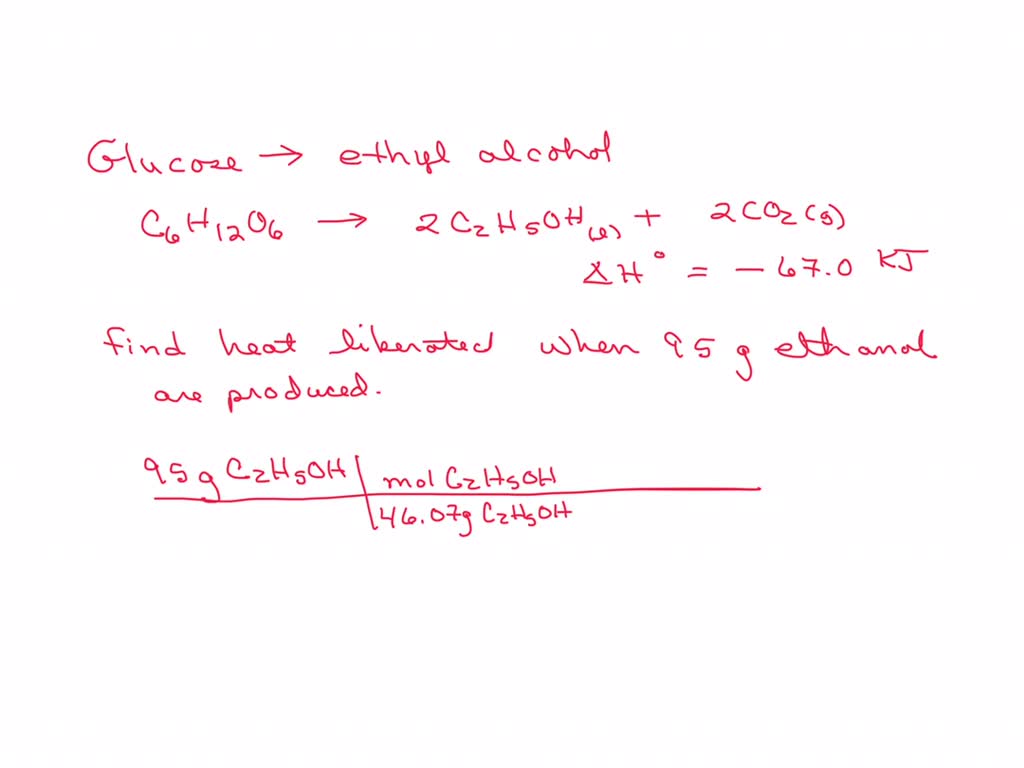 Glucose → ethyl alcohol
C6H12O6 → 2C2H5OH(l) + 2CO2(g)
ΔH° = -67.0 KJ
find heat liberated when 95 g ethanol
are produced.
95g C2H5OH | mol C2H5OH
46.07g C2H5OH